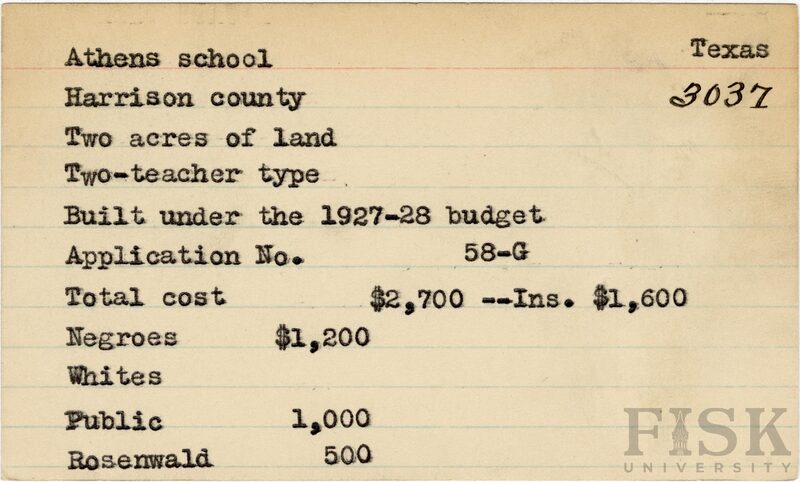 Athens school Texas
Harrison county 3037
Two acres of land
Two-teacher type
Built under the 1927-28 budget
Application No. 58-G
Total cost $2,700 --Ins. $1,600
Negroes $1,200
Whites
Public 1,000
Rosenwald 500
FISK
UNIVERSITY